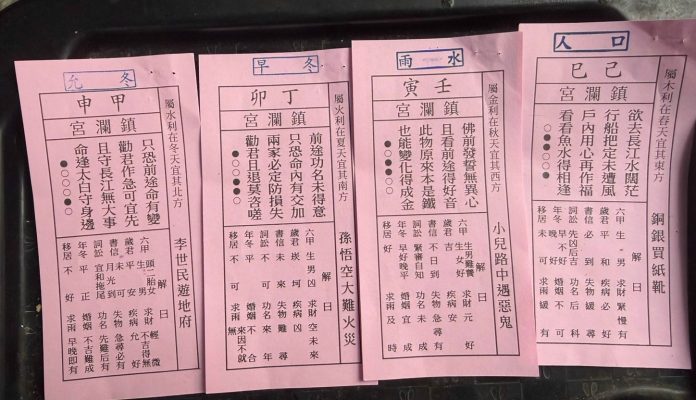 允冬
甲申
鎮瀾宮
屬水利在冬天宜其北方
只恐前途命有變
勸君作急可宜先
且守長江無大事
命逢太白守身邊
李世民遊地府
解曰
早冬
丁卯
鎮瀾宮
屬火利在夏天宜其南方
前途功名未得意
只恐命內有交加
兩家必定防損失
勸君且退莫咨嗟
孫悟空大難火災
解曰
六甲 生男凶 求財 空未來
歲君 崁坷 疾病 凶
書信 未來 失物 難尋
詞訟 不可 功名 來年
年冬 平平 婚姻 不合
移居 不可 求雨 來因不就無
雨水
壬寅
鎮瀾宮
屬金利在秋天宜其西方
佛前發誓無異心
且看前途得好音
此物原來本是鐵
也能變化得成金
小兒路中遇惡鬼
解曰
六甲 生男難養女好 求財 元好
歲君 吉 疾病 安
書信 不日到 失物 急尋有
詞訟 緊審自知 功名 未成
年冬 早好晚平 婚姻 宜成
移居 好 求雨 及時
人口
己巳
鎮瀾宮
屬木利在春天宜其東方
欲去長江水闊茫
行船把定未遭風
戶內用心再作福
看看魚水得相逢
銅銀買紙靴
解曰
六甲 生男 求財 緊慢有
歲君 平和 疾病 必好
書信 必到 失物 緊尋有
詞訟 先凶後吉 功名 后科
年冬 早不好晚好 婚姻 緩可
移居 不可 求雨 緩有